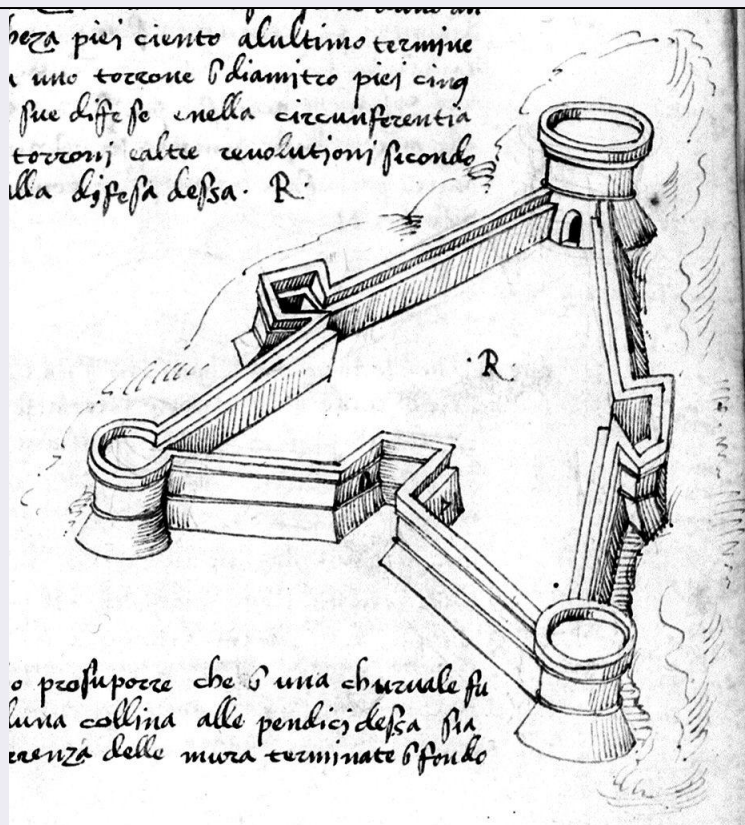 piej ciento alultimo termine
uno torrone diamitro piej cinq
sue difese enella circunferentia
torronj ealtre revolutionj sicondo
alla difesa dessa. R
R
prosuporre che una churvale su
luna collina alle pendicj dessa sia
erenza delle mura terminate fondo